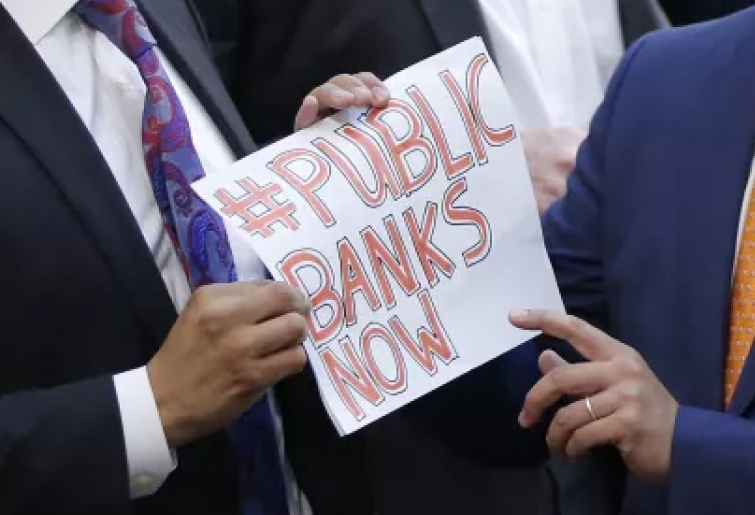 #PUBLIC
BANKS
NOW